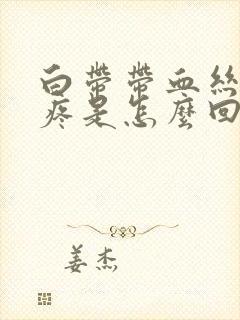 白帶帶血絲
疼是怎麼回
姜杰